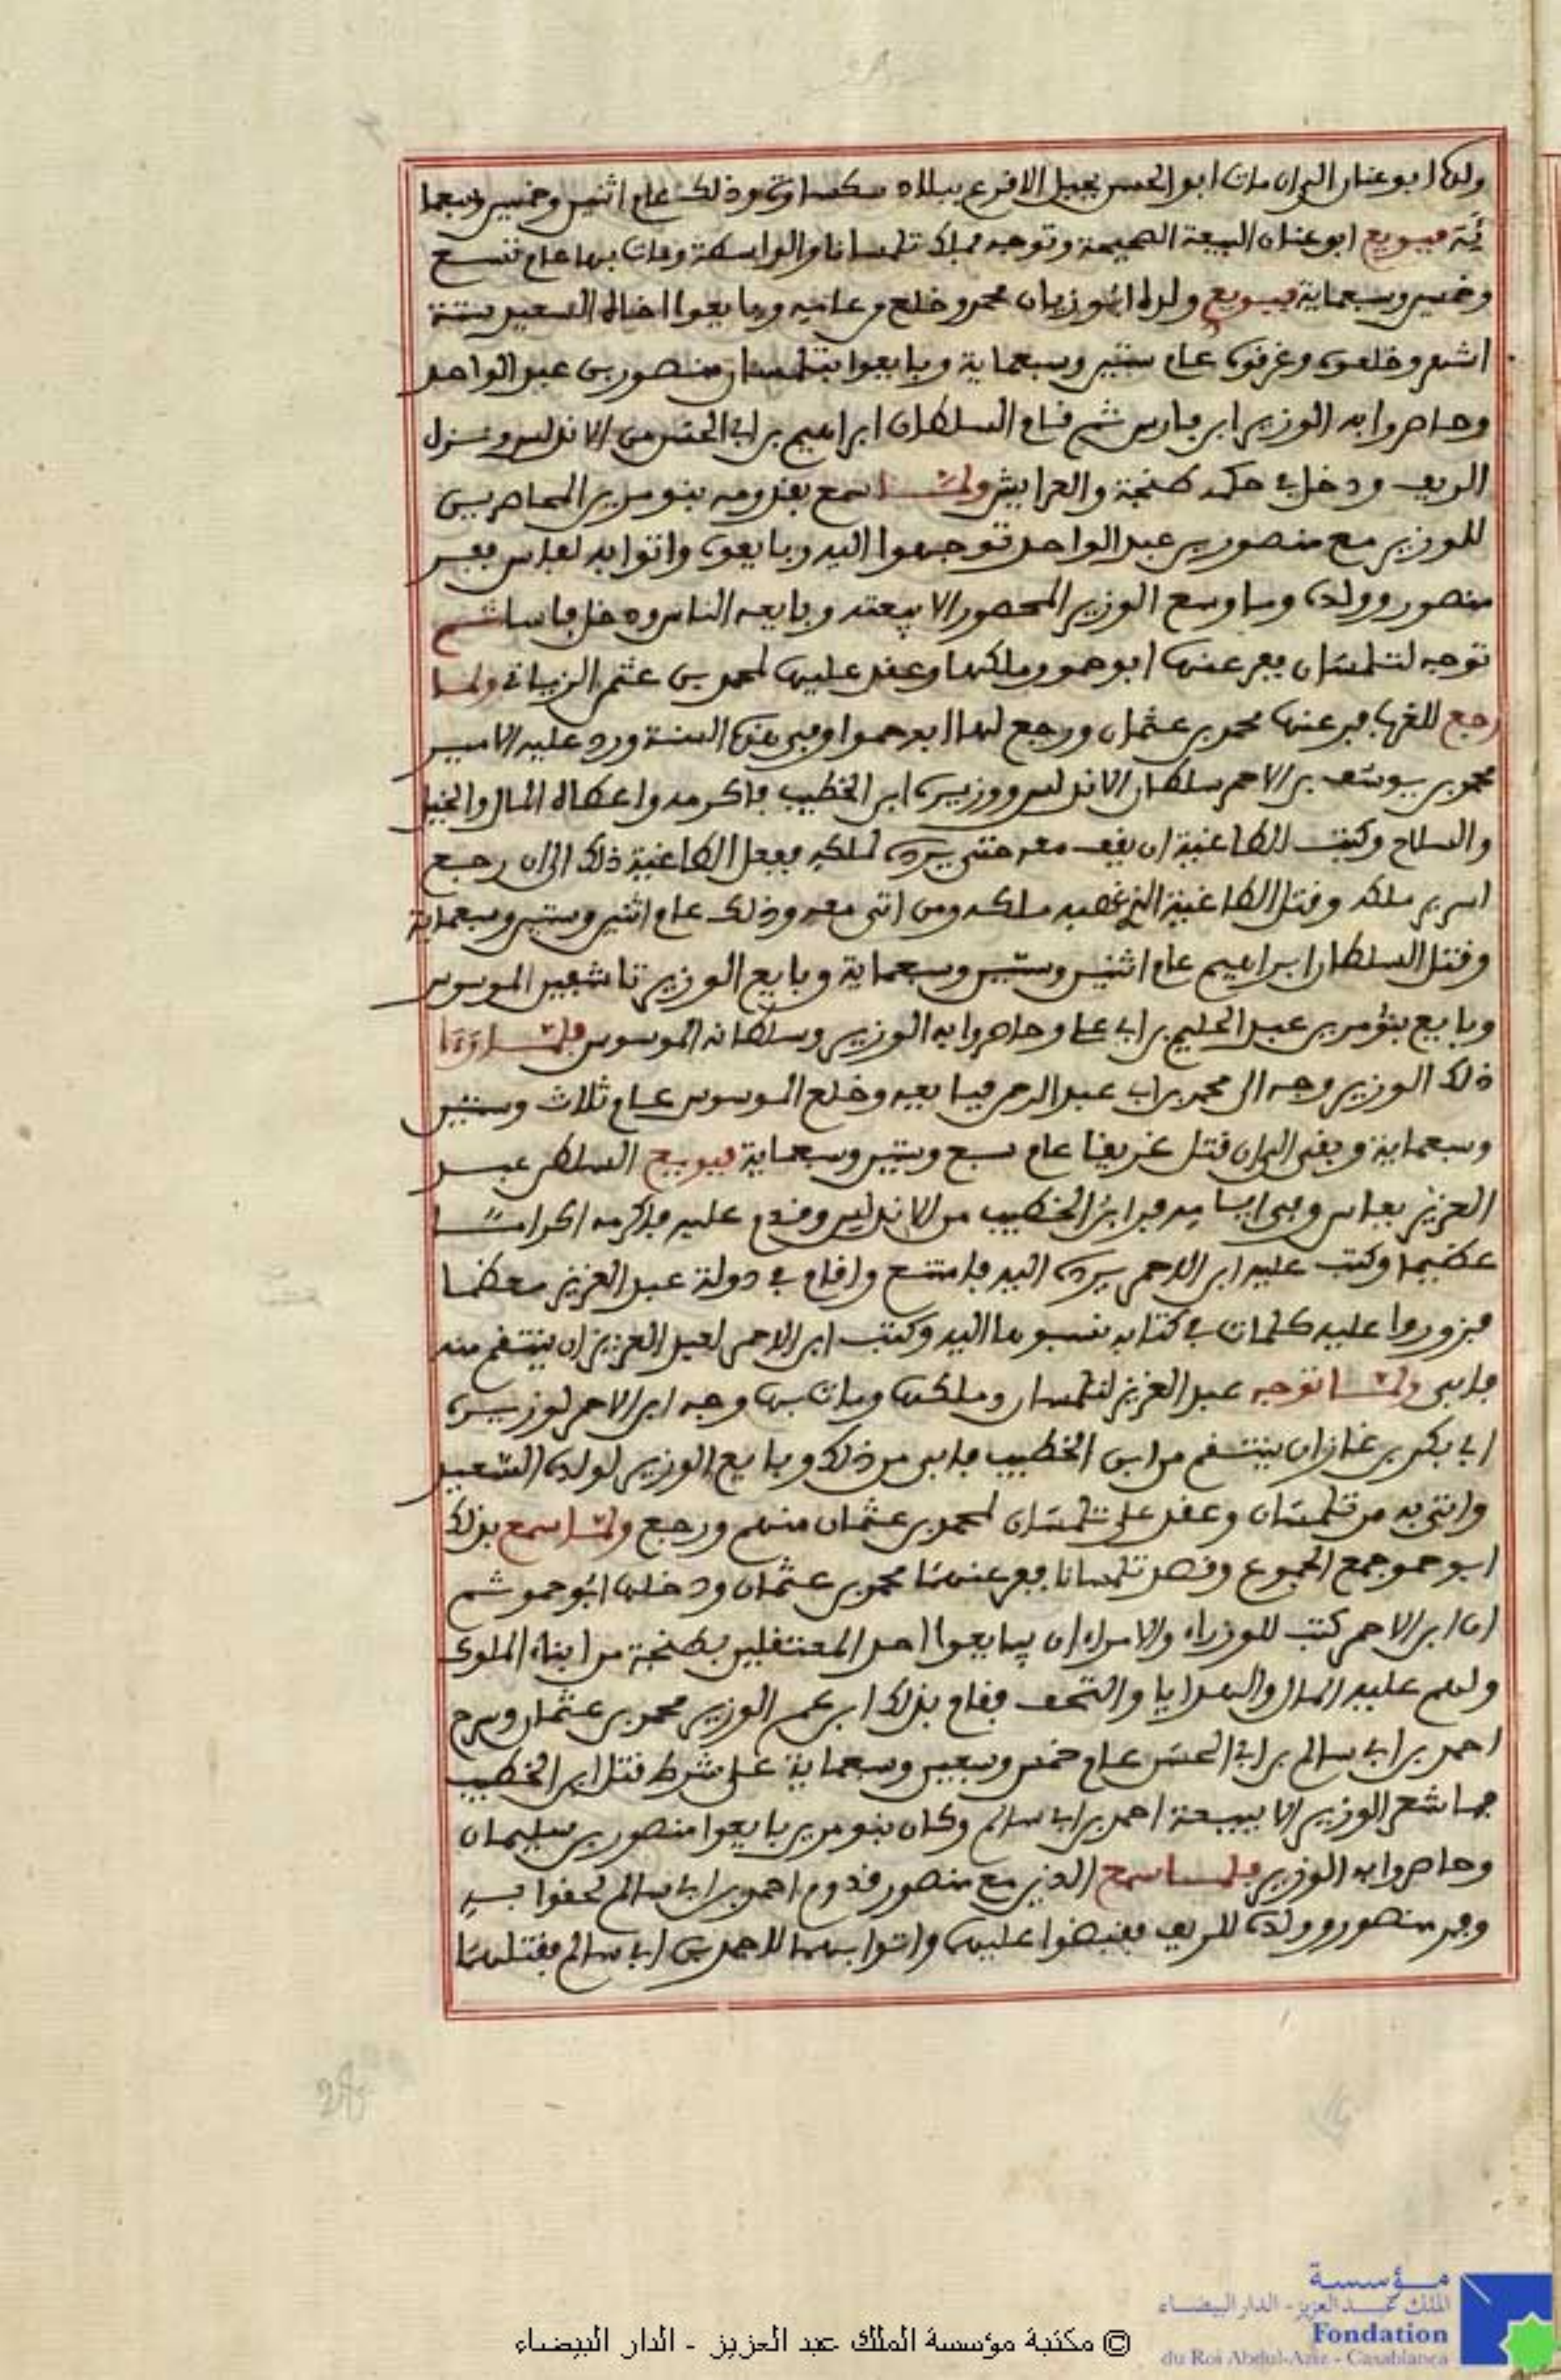 ولدها ابو عنان الى ان مات ابو الحسن بجبل الاقرع ببلاد سكساوة وذلك عام اثنين وخمسين وسبعما
ئة فبويع ابو عنان البيعة الصحيحة وتوجه فملك تلمسانا والواسطة ومات بها عام تسع
وخمسين وسبعماية فبويع ولده ابو زيان محمد وخلع من عامه وبايعوا اخاه السعيد ستة
اشهر وخلعوه وغرقوه عام ستين وسبعماية وبايعوا بتلمسان منصور بن عبد الواحد
وحاصروا به الوزير ابن فارس ثم قام السلطان ابراهيم بن ابي الحسن من الاندلس ونزل
الريف ودخل في حكمه طنجة والعرايش ولما سمع بقدومه بنو مرين المحاصرين
للوزير مع منصور بن عبد الواحد توجهوا اليه وبايعوه واتوا به لفاس ففر
منصور وولده وما وسع الوزير المحصور الا بيعته وبايعه الناس ودخل فاسا ثم
توجه لتلمسان ففر عنها ابو حمو وملكها وعقد عليها لمحمد بن عثمن الزياني ولما
رجع للغرب فر عنها محمد بن عثمان ورجع لها ابو حموا وفي هذه السنة ورد عليه الامير
محمد بن يوسف بن الاحمر سلطان الاندلس ووزيره ابن الخطيب فاكرمه واعطاه المال والخيل
والسلاح وكتب الطاغية ان يقف معه حتى يرده لملكه ففعل الطاغية ذلك الى ان رجع
لسرير ملكه وقتل الطاغية الذي غصبه ملكه ومن اتى معه وذلك عام اثنين وستين وسبعماية
وقتل السلطان ابراهيم عام اثنين وستين وسبعماية وبايع الوزير تاشفين الموسوس
وبايع بنو مرين عبد الحليم بن ابي علي وحاصروا به الوزير وسلطانه الموسوس فلما رءا
ذلك الوزير وجه الى محمد بن ابي عبد الرحمن فبايعه وخلع الموسوس عام ثلاث وستين
وسبعماية وبقى الى ان قتل غريقا عام سبع وستين وسبعماية فبويع السلطن عبد
العزيز بفاس وفي ايامه فر ابن الخطيب من الاندلس وقدم عليه فاكرمه اكراما
عظيما وكتب عليه ابن الاحمر يرده اليه فامتنع واقام في دولة عبد العزيز معظما
فزوروا عليه كلمات في كتابه نسبوها اليه وكتب ابن الاحمر لعبد العزيز ان ينتقم منه
فابى ولما توجه عبد العزيز لتلمسان وملكها ومات بها وجه ابن الاحمر لوزيره
ابي بكر بن غازان ينتقم من ابن الخطيب فابى من ذلك وبايع الوزير لولده السعيد
واتى به من تلمسان وعقد على تلمسان لمحمد بن عثمان منهم ورجع ولما سمع بذلك
ابو حمو جمع الجموع وقصد تلمسانا ففر عنها محمد بن عثمان ودخلها ابو حمو ثم
ان ابن الاحمر كتب للوزراء والامراء ان يبايعوا احد المعتقلين بطنجة من ابناء الملوك
ولهم عليه المال والهدايا والتحف فقام بذلك ابن عم الوزير محمد بن عثمان وسرح
احمد بن ابي سالم بن ابي الحسن عام خمس وسبعين وسبعماية على شرط قتل ابن الخطيب
فما شعر الوزير الا ببيعة احمد بن ابي سالم وكان بنو مرين بايعوا منصور بن سليمان
وحاصروا به الوزير فلما سمع الذين مع منصور قدوم احمد بن ابي سالم لحقوا به
وفر منصور وولده للريف فقبضوا عليهما واتوا بهما لاحمد بن ابي سالم فقتلهما
28
مؤسسة
الملك عبد العزيز - الدار البيضاء
Fondation
du Roi Abdul-Aziz - Casablanca
© مكتبة مؤسسة الملك عبد العزيز - الدار البيضاء